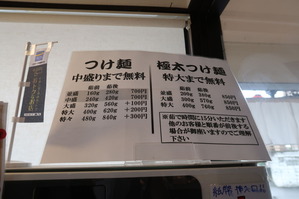 つけ麺
中盛りまで無料
茹前 茹後
並盛 160g 280g 700円
中盛 240g 420g 700円
大盛 320g 560g +100円
特大 400g 620g +200円
特々 480g 840g +300円
極太つけ麺
特大まで無料
茹前 茹後
並盛 200g 380g 850円
大盛 300g 570g 850円
特大 400g 760g 850円
※茹で時間に15分いただきます
他のお客様と順番が前後する
場合が御座いますのでご理解
下さい